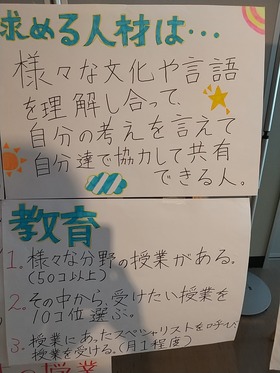 求める人材は…
様々な文化や言語
を理解し合って、
自分の考えを言えて
自分達で協力して共有
できる人。
教育
1. 様々な分野の授業がある。
(50コ以上)
2. その中から、受けたい授業を
10コ位選ぶ。
3. 授業にあったスペシャリストを呼び、
授業を受ける。(月1程度)
の授業